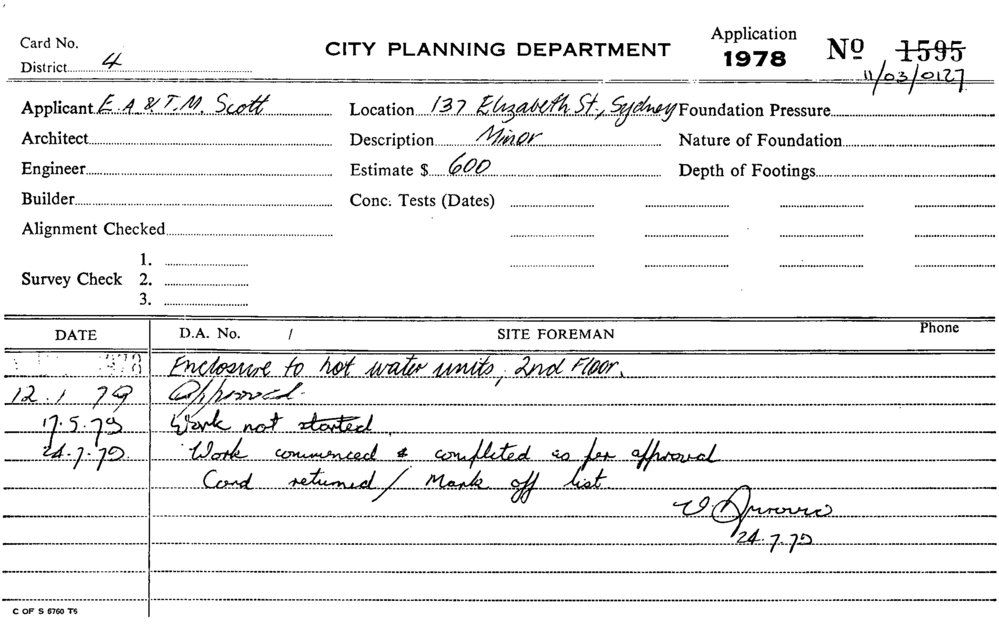 Card No.
District 4
CITY PLANNING DEPARTMENT
Application
1978
No 1595
11/03/0127
Applicant E. A & T. M. Scott
Location 137 Elizabeth St., Sydney
Foundation Pressure
Architect
Description Minor
Nature of Foundation
Engineer
Estimate $ 600
Depth of Footings
Builder
Conc. Tests (Dates)
Alignment Checked
Survey Check 1.
2.
3.
DATE D.A. No. / SITE FOREMAN Phone
Enclosure to hot water units, 2nd Floor.
12.1 79 Approved.
17.5.79 Work not started.
24.7.79. Work commenced & completed as per approval
Card returned / Mark off list
24.7.79
C OF S 5760 T5